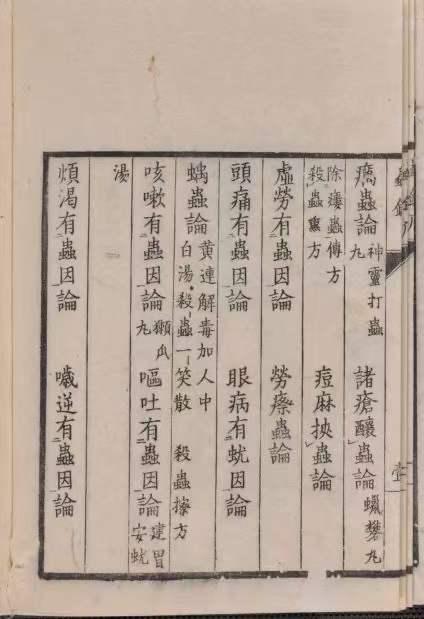 癘蟲論 神靈打蟲丸 諸瘡釀蟲論 蠟礬丸
除瘻蟲傳方 殺蟲熏方 痘麻挾蟲論
虛勞有蟲因論 勞瘵蟲論
頭痛有蟲因論 眼病有蚘因論
蝺蟲論 黃連解毒加人中白湯 殺蟲一笑散 殺蟲擦方
咳嗽有蟲因論 獺爪丸 嘔吐有蟲因論 建胃安蚘
湯
煩渴有蟲因論 噦逆有蟲因論